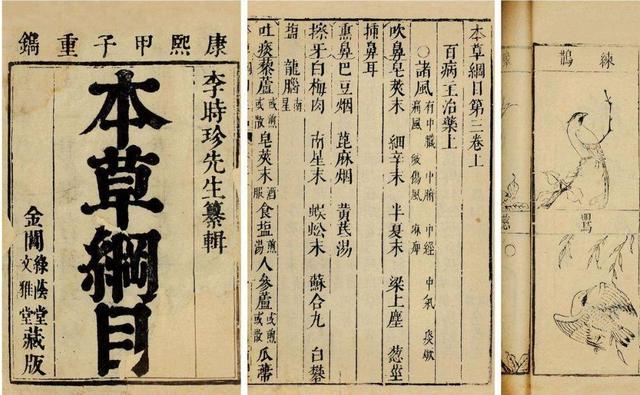 康熙甲子重鐫
李時珍先生纂輯
本草綱目
金閶綠蔭堂文雅堂藏版
本草綱目第三卷上
百病主治藥上
○諸風 有中臟 中腑 中經 中氣 痰厥
痛風 破傷風 麻痺
吹鼻皂莢末 細辛末 半夏末 梁上塵 葱莖
插鼻耳
熏鼻巴豆烟 蓖麻烟 黃芪湯
擦牙白梅肉 南星末 蜈蚣末 蘇合丸 白礬
塩 龍腦 南星
吐痰藜蘆 或煎或散 皂莢末 酒服 食塩 煎湯 人參蘆 或煎或散 瓜蒂
練鵲